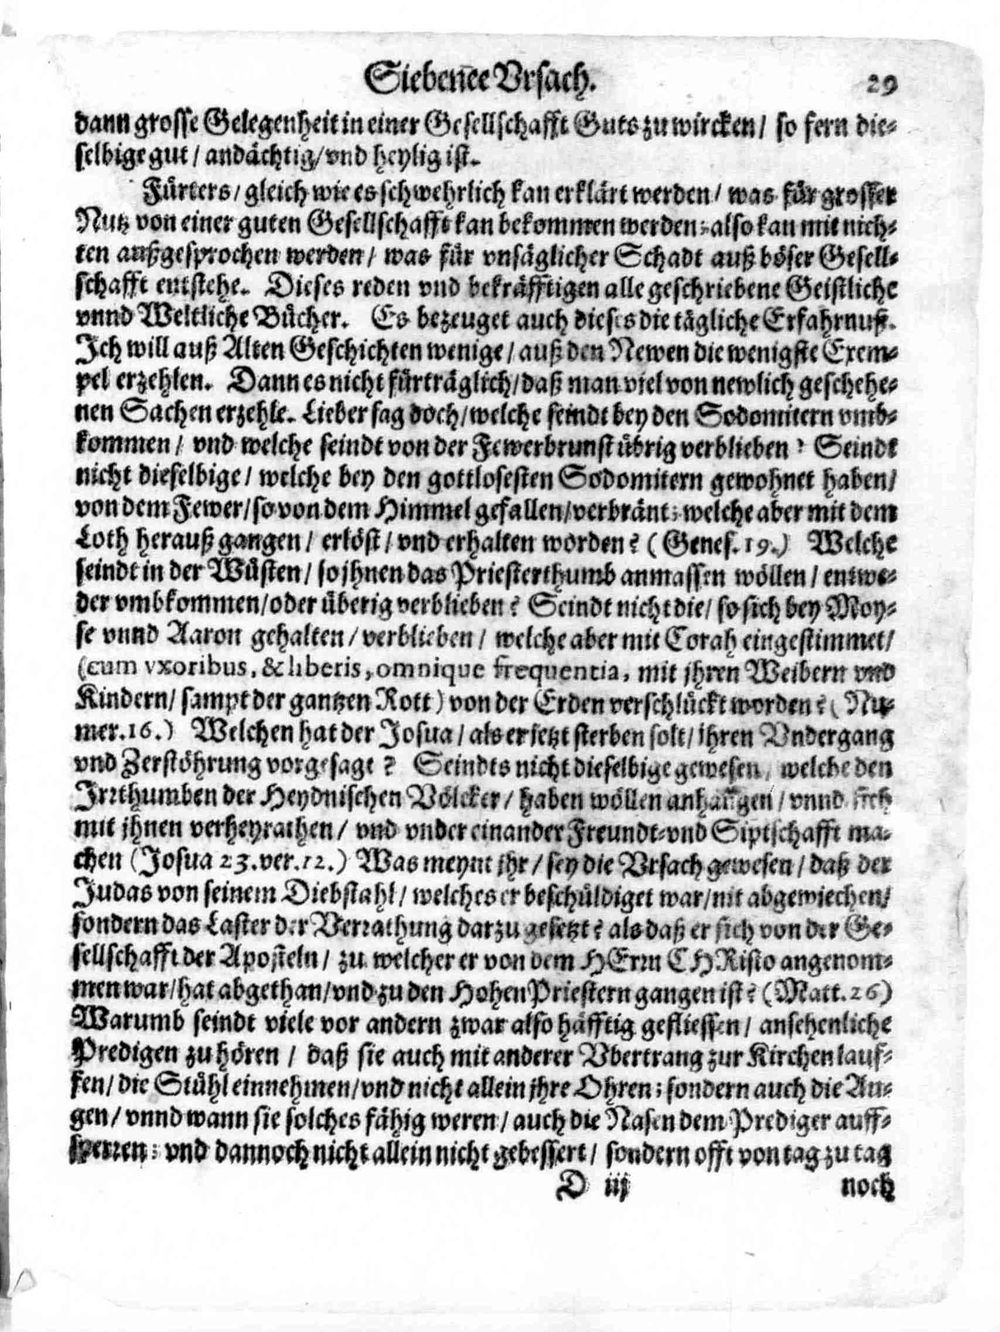 Siebende Vrsach. 29
dann grosse Gelegenheit in einer Gesellschafft Guts zu wircken / so fern die-
selbige gut / andächtig / vnd heylig ist.
Fürters / gleich wie es schwehrlich kan erklärt werden / was für grosser
Nutz von einer guten Gesellschafft kan bekommen werden: also kan mit nich-
ten außgesprochen werden / was für vnsäglicher Schadt auß böser Gesell-
schafft entstehe. Dieses reden vnd bekräfftigen alle geschriebene Geistliche
vnnd Weltliche Bücher. Es bezeuget auch dieses die tägliche Erfahrnuß.
Ich will auß Alten Geschichten wenige / auß den Newen die wenigste Exem-
pel erzehlen. Dann es nicht fürträglich / daß man viel von newlich geschehe-
nen Sachen erzehle. Lieber sag doch / welche seindt bey den Sodomitern vmb-
kommen / vnd welche seindt von der Fewerbrunst übrig verblieben? Seindt
nicht dieselbige / welche bey den gottlosesten Sodomitern gewohnet haben /
von dem Fewer / so von dem Himmel gefallen / verbränt: welche aber mit dem
Loth herauß gangen / erlöst / vnd erhalten worden? (Genes. 19.) Welche
seindt in der Wüsten / so jhnen das Priesterthumb anmassen wöllen / entwe-
der vmbkommen / oder überig verblieben? Seindt nicht die / so sich bey Moy-
se vnnd Aaron gehalten / verblieben / welche aber mit Corah eingestimmet /
(cum vxoribus, & liberis, omnique frequentia, mit jhren Weibern vnd
Kindern / sampt der gantzen Rott) von der Erden verschlückt worden? (Nu-
mer. 16.) Welchen hat der Josua / als er jetzt sterben solt / jhren Vndergang
vnd Zerstöhrung vorgesagt? Seindts nicht dieselbige gewesen / welche den
Irrthumben der Heydnischen Völcker / haben wöllen anhangen / vnnd sich
mit jhnen verheyrathen / vnd vnder einander Freundt- vnd Siptschafft ma-
chen (Josua 23. ver. 12.) Was meynt jhr / sey die Vrsach gewesen / daß der
Judas von seinem Diebstahl / welches er beschüldiget war / nit abgewiechen /
sondern das Laster der Verrathung darzu gesetzt? als daß er sich von der Ge-
sellschafft der Aposteln / zu welcher er von dem HErrn CHRisto angenom-
men war / hat abgethan / vnd zu den Hohen Priestern gangen ist? (Matt. 26)
Warumb seindt viele vor andern zwar also häfftig gefliessen / ansehenliche
Predigen zu hören / daß sie auch mit anderer Vbertrang zur Kirchen lauf-
fen / die Stühl einnehmen / vnd nicht allein jhre Ohren: sondern auch die Au-
gen / vnnd wann sie solches fähig weren / auch die Nasen dem Prediger auff-
sperren: vnd dannoch nicht allein nicht gebessert / sondern offt von tag zu tag
D iij noch